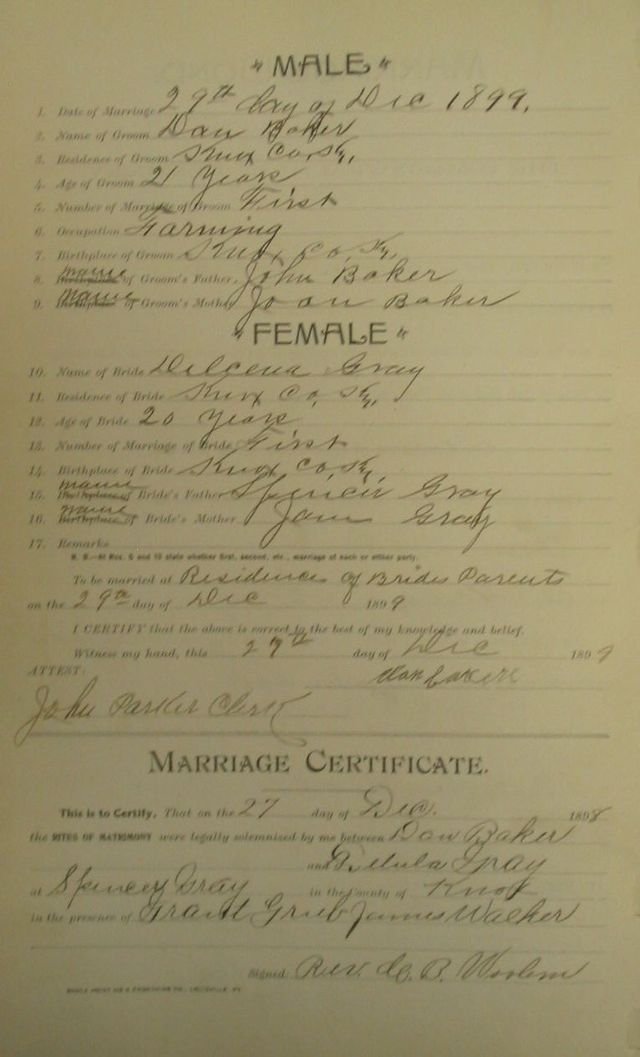 " MALE "
1. Date of Marriage 29th day of Dec 1899.
2. Name of Groom Dan Baker
3. Residence of Groom Knox Co, Ky,
4. Age of Groom 21 Years
5. Number of Marriage of Groom First
6. Occupation Farming
7. Birthplace of Groom Knox Co, Ky,
8. Name of Groom's Father, John Baker
9. Name of Groom's Mother Joan Baker
" FEMALE "
10. Name of Bride Delcena Gray
11. Residence of Bride Knox Co, Ky,
12. Age of Bride 20 Years
13. Number of Marriage of Bride First
14. Birthplace of Bride Knox Co, Ky,
15. Name Birthplace of Bride's Father Spencer Gray
16. Name Birthplace of Bride's Mother Jane Gray
17. Remarks
N. B.—At Nos. 5 and 13 state whether first, second, etc., marriage of each or either party.
To be married at Residence of Brides Parents
on the 29th day of Dec 1899
I CERTIFY that the above is correct to the best of my knowledge and belief.
Witness my hand, this 27th day of Dec 1899
ATTEST: Dan Baker
John Parker Clerk
MARRIAGE CERTIFICATE.
This is to Certify, That on the 27 day of Dec. 1898
the RITES OF MATRIMONY were legally solemnized by me between Dan Baker
and Gray
at Spencer Gray in the County of Knox
in the presence of Grant James Walker
Signed Rev. B.